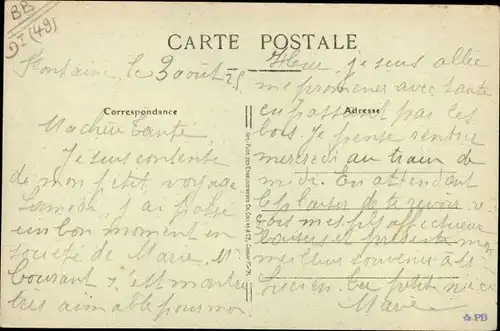 BB
9I (49)
CARTE POSTALE
Fontaine, le 3 août 25
Correspondance
Ma chère Tante,
Je suis contente
de mon petit voyage
Samedi, j'ai passé
un bon moment en
société de Marie, Mr
Courant s'est montré
très aimable pour moi.
Hier je suis allée
me promener avec tante
en passant par les
Adresse
bois. Je pense rentrer
mercredi au train de
midi. En attendant
le plaisir de te revoir, re-
çois mes plus affectueux
baisers et présente mon
meilleur souvenir à M.
Lucien. Ta petite nièce
Marie
☆ PB